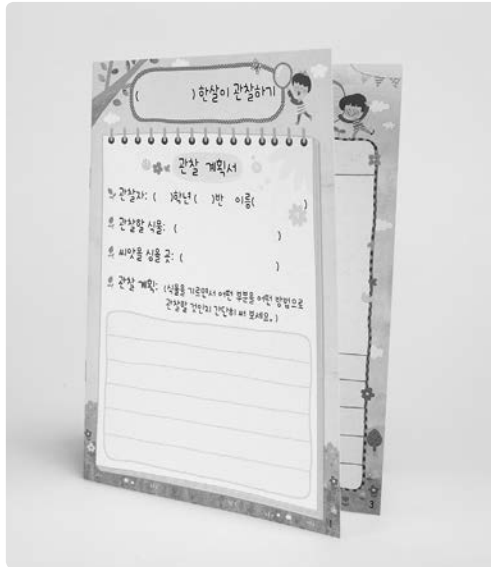 ( ) 한살이 관찰하기
관찰 계획서
관찰자: ( )학년 ( )반 이름( )
관찰할 식물: ( )
씨앗을 심을 곳: ( )
관찰 계획: (식물을 기르면서 어떤 부분을 어떤 방법으로
관찰할 것인지 간단히 써 보세요.)
1
3